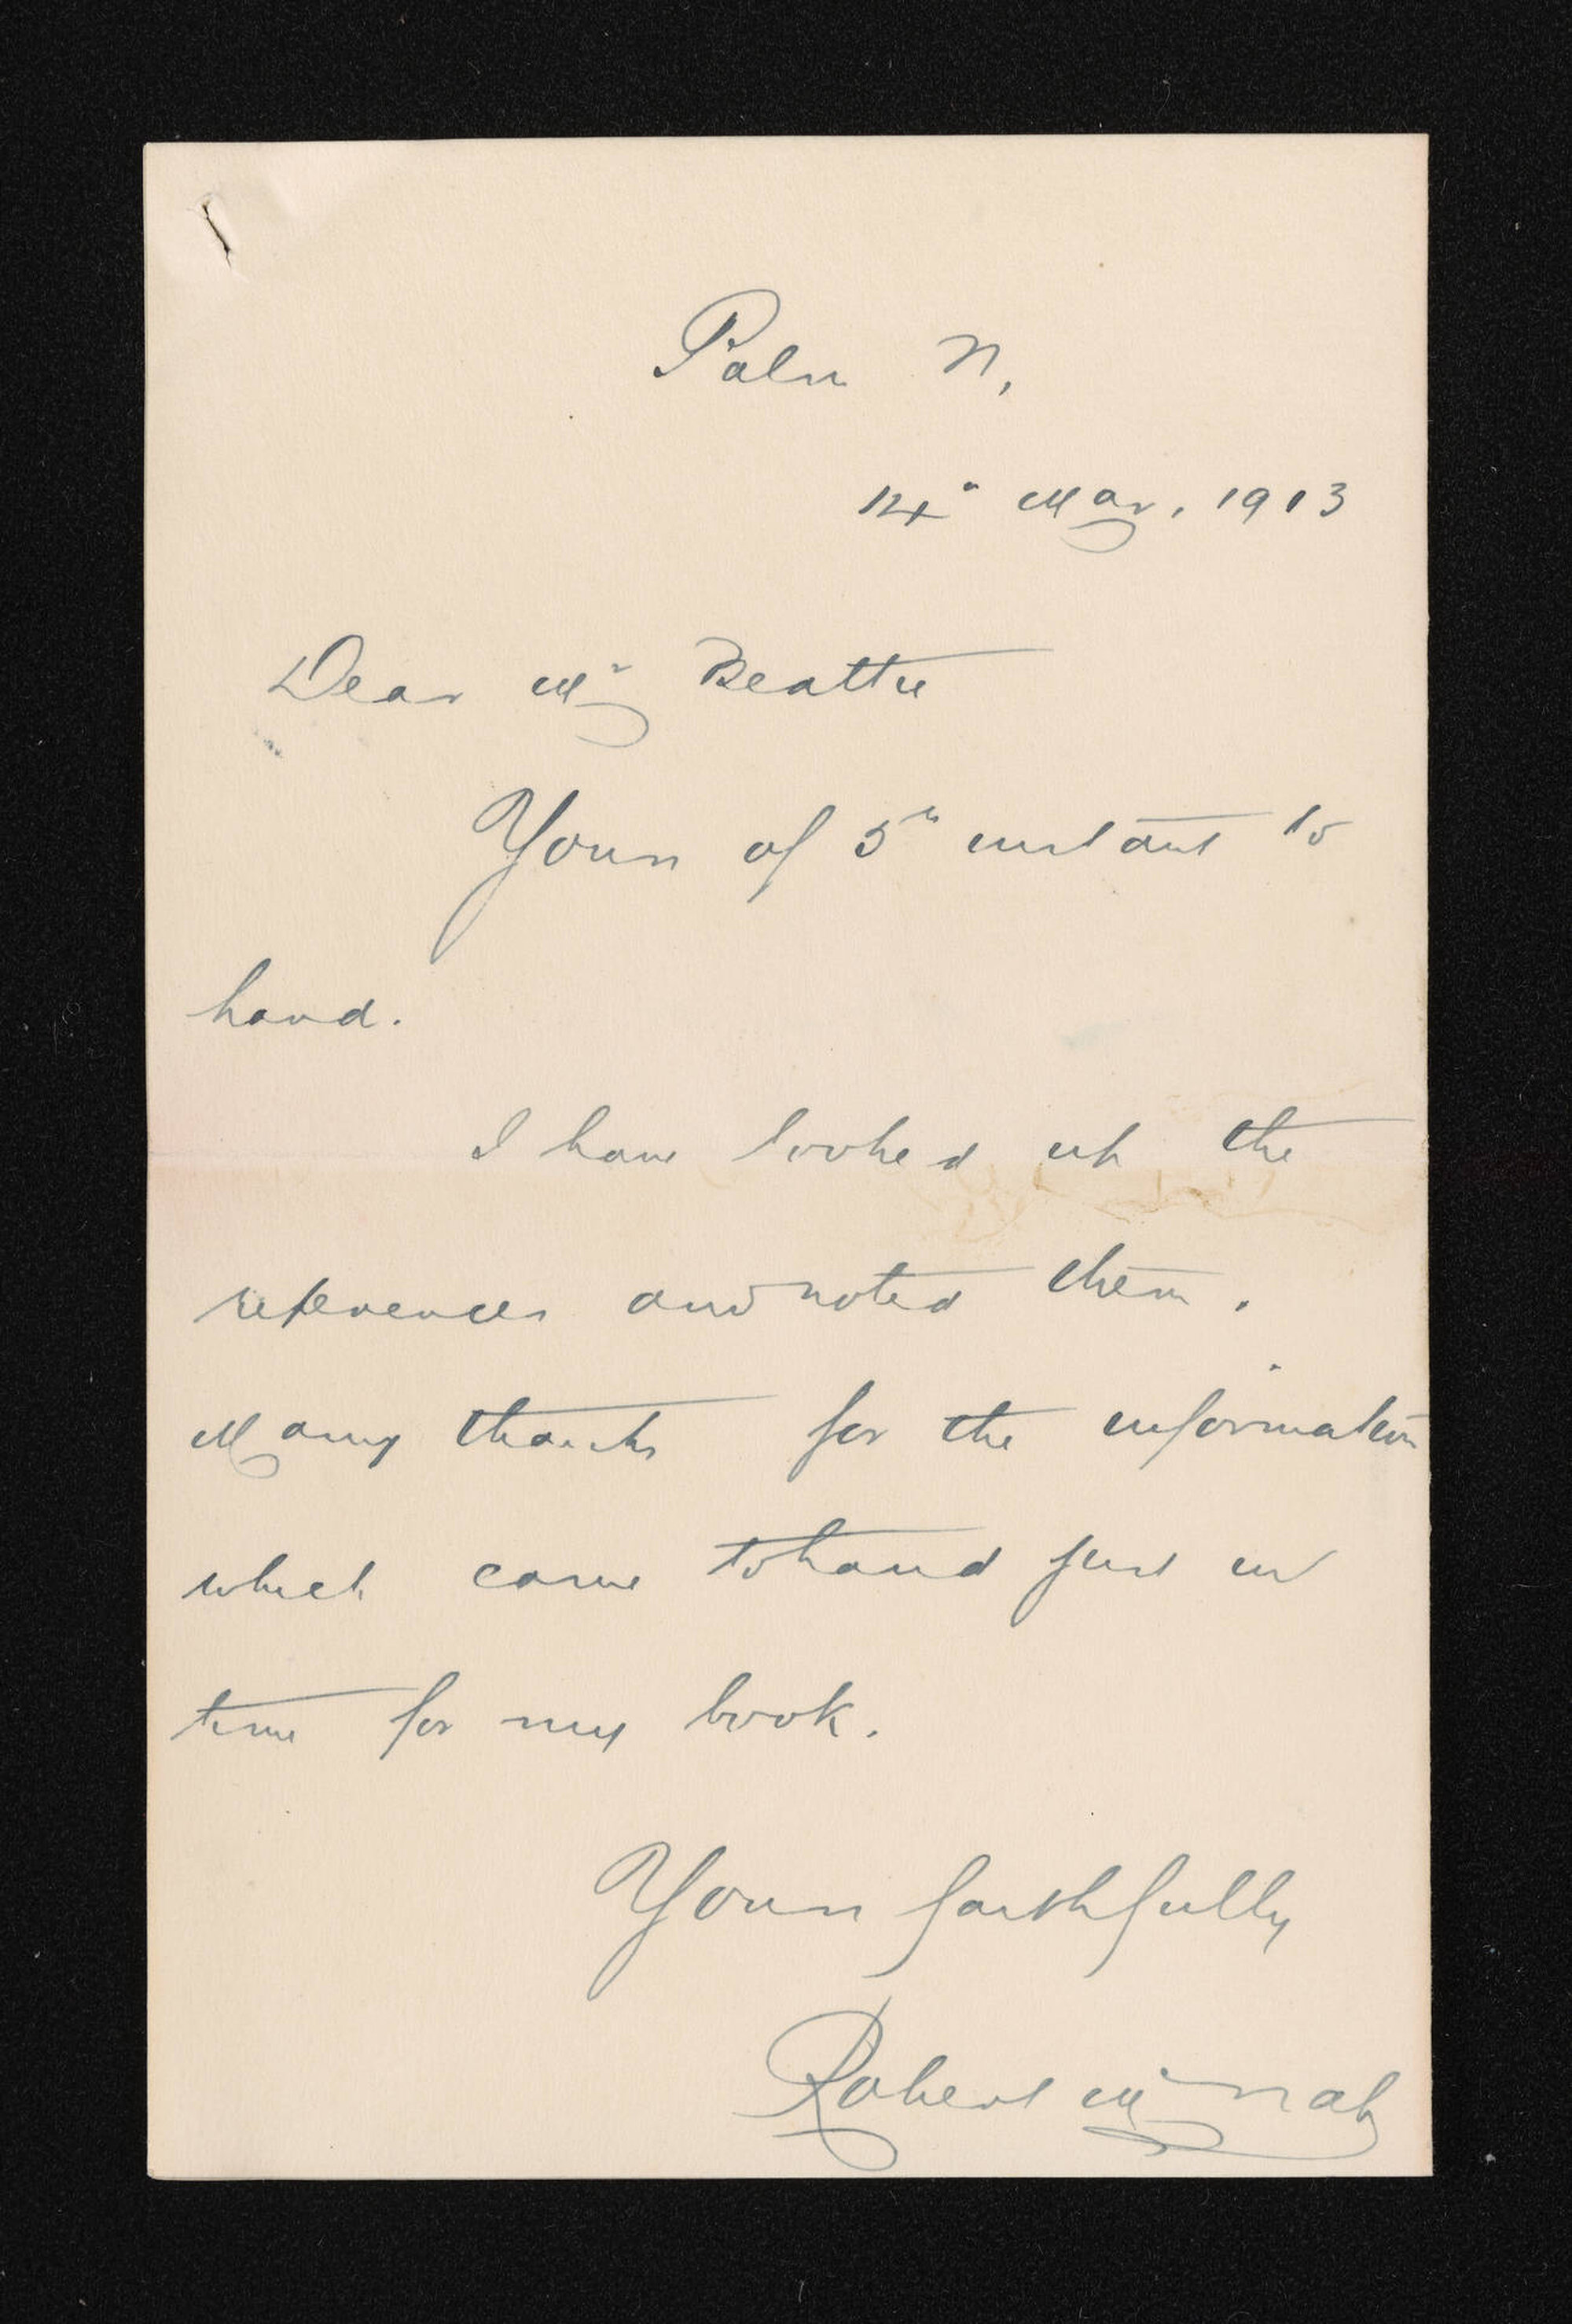 Palm N.
14th Mar, 1913
Dear Mr Beattie
Yours of 5th instant to
hand.
I have looked up the
references and noted them.
Many thanks for the information
which came to hand just in
time for my book.
Yours faithfully
Robert McNab